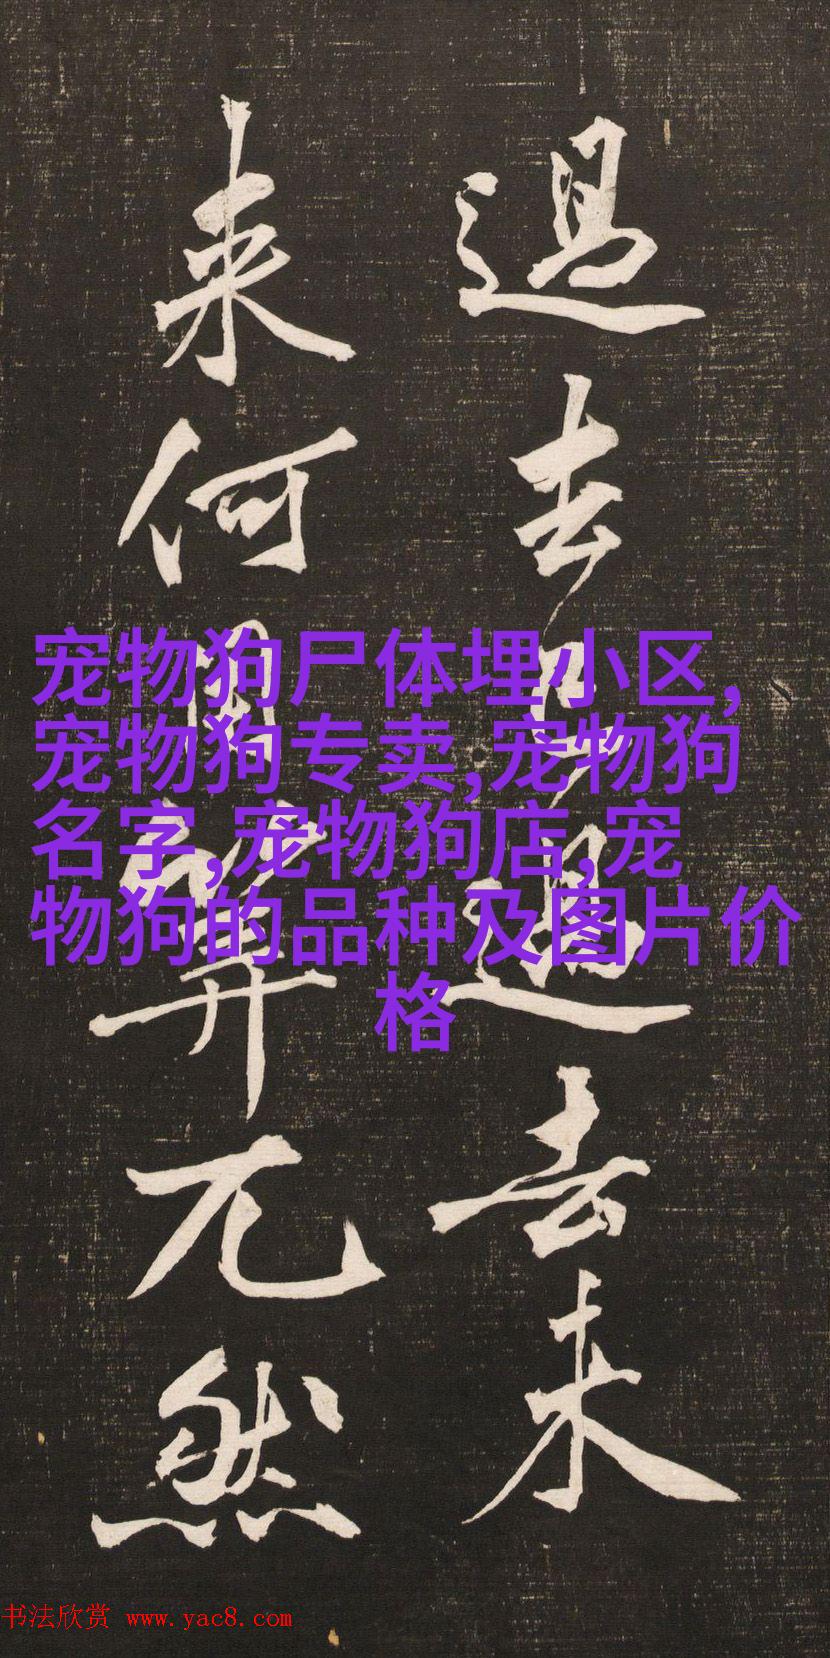 過去過去未
来何用算兀然
宠物狗尸体埋小区,
宠物狗专卖,宠物狗
名字,宠物狗店,宠
物狗的品种及图片价
格
书法欣赏 www.yac8.com